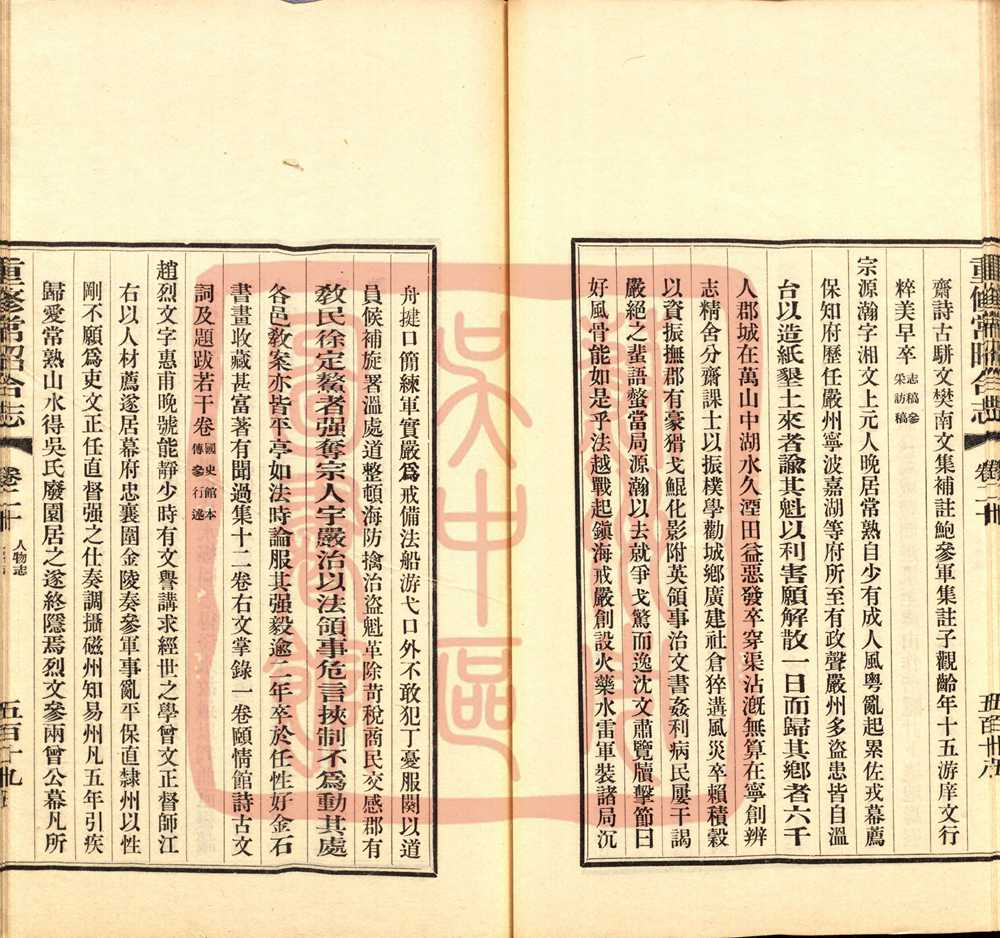 齋詩古駢文樊南文集補註鮑參軍集註子觀齡年十五游庠文行
粹美早卒志稿參采訪稿
宗源瀚字湘文上元人晚居常熟自少有成人風粤亂起累佐戎幕薦
保知府歷任嚴州寧波嘉湖等府所至有政聲嚴州多盜患皆自溫
台以造紙墾土來者諭其魁以利害願解散一日而歸其鄉者六千
人郡城在萬山中湖水久湮田益惡發卒穿渠沾漑無算在寧創辨
志精舍分齋課士以振樸學勸城鄉廣建社倉猝溝風災卒賴積穀
以資振撫郡有豪猾戈鯤化影附英領事治文書姦利病民屢干謁
嚴絕之蜚語螫當局源瀚以去就爭戈驚而逸沈文肅覽牘擊節曰
好風骨能如是乎法越戰起鎭海戒嚴創設火藥水雷軍裝諸局沉
重修常昭合志
卷二十
五百卅八
舟揵口簡練軍實嚴爲戒備法船游弋口外不敢犯丁憂服闋以道
員候補旋署溫處道整頓海防擒治盜魁革除苛稅商民交感郡有
敎民徐定鰲者强奪宗人宇嚴治以法領事危言挾制不爲動其處
各邑敎案亦皆平亭如法時論服其强毅逾二年卒於任性好金石
書畫收藏甚富著有聞過集十二卷右文掌錄一卷頤情館詩古文
詞及題跋若干卷國史館本傳參行述
趙烈文字惠甫晚號能靜少時有文譽講求經世之學曾文正督師江
右以人材薦遂居幕府忠襄圍金陵奏參軍事亂平保直隸州以性
剛不願爲吏文正任直督强之仕奏調攝磁州知易州凡五年引疾
歸愛常熟山水得吳氏廢園居之遂終隱焉烈文參兩曾公幕凡所
重修常昭合志
卷二十
人物志
五百卅九